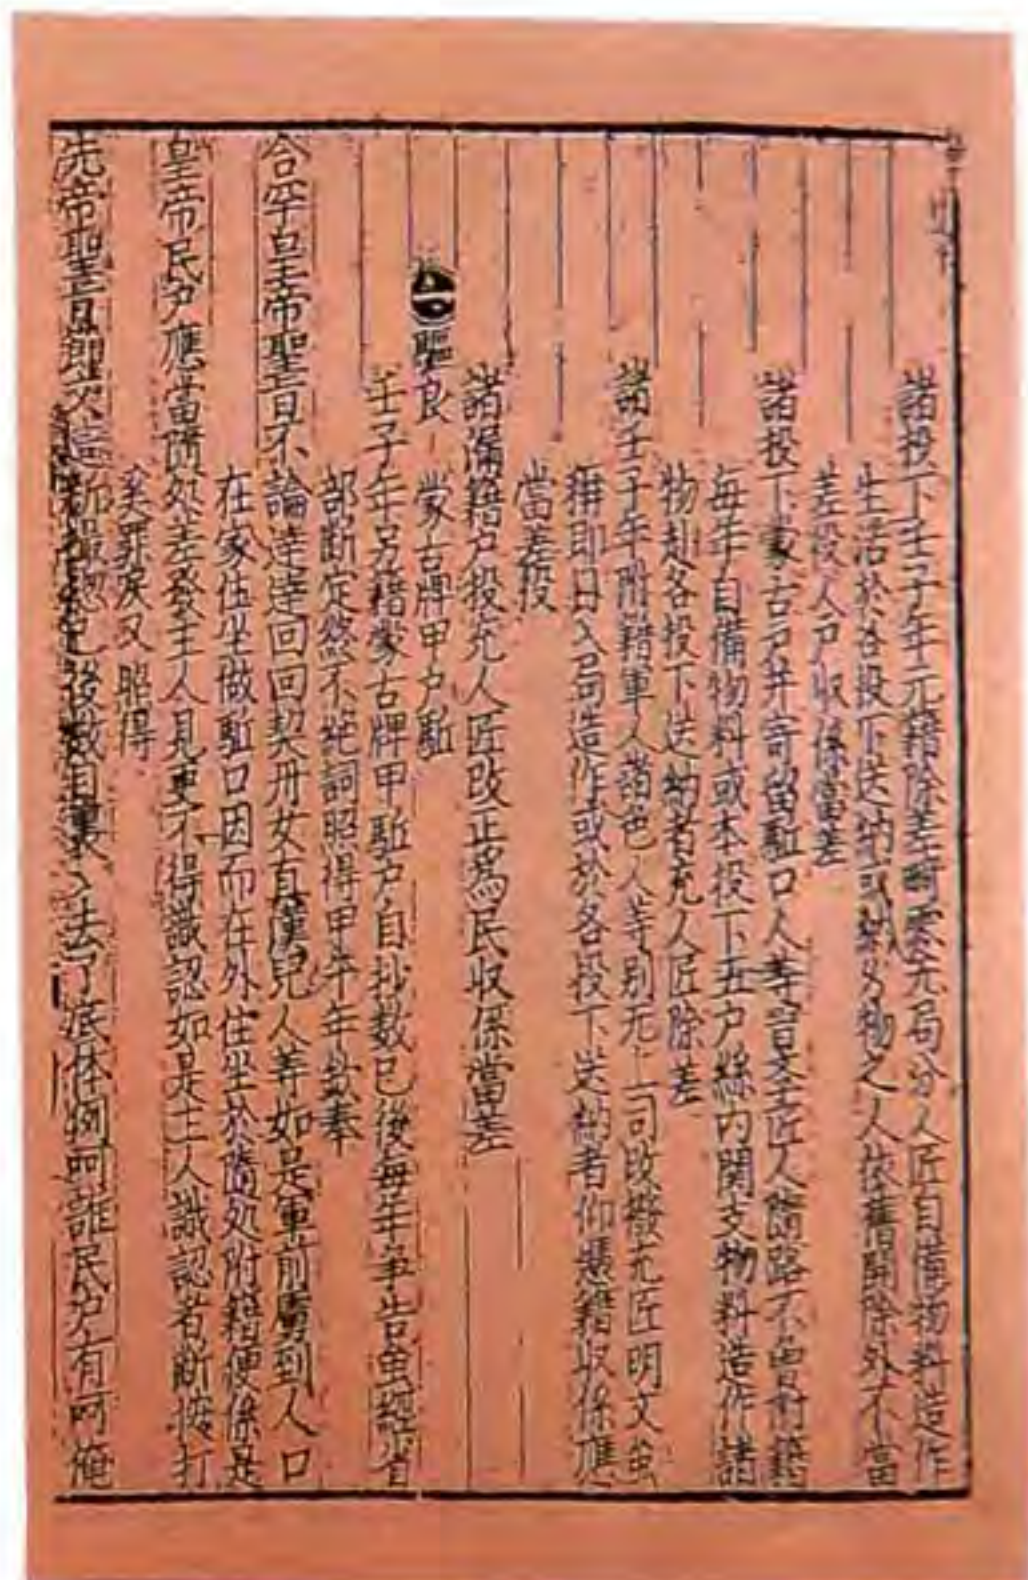 諸投下壬子年元籍除差畸零无局分人匠自備物料造作
生活於各投下送納或納錢物之人依舊開除外不當
差役人户收係當差
諸投下蒙古户并寄留駈口人等習學匠人隨路不曾附籍
每年自備物料或本投下五户絲內関支物料造作諸
物赴各投下送納者充人匠除差
諸壬子年附籍軍人諸色人等別无上司改撥充匠明文虽
稱即日入局造作或於各投下送納者仰憑籍収係應
當差役
諸漏籍户投充人匠改正為民収係當差
驅良 蒙古牌甲户駈
壬子年另籍蒙古牌甲駈户自抄数已後每年爭告虽經省
部斷定然不絶詞照得甲午年欽奉
合罕皇帝聖旨不論達達回回契丹女真漢兒人等如是軍前虜到人口
在家住坐做駈口因而在外住坐於隨処附籍便係是
皇帝民户應當隨処差發主人見更不得識認如是主人識認者斷按打
奚罪戾又照得
先帝聖旨 已後数目裏入去了底体例呵誰民户有呵俺